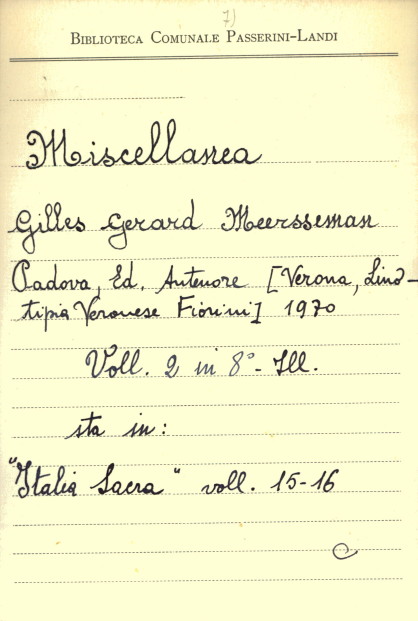 7)
BIBLIOTECA COMUNALE PASSERINI-LANDI
Miscellanea
Gilles Gerard Meersseman
Padova, Ed. Antenore [Verona, Lino-
tipia Veronese Fiorini] 1970
Voll. 2 in 8° - Ill.
sta in:
"Italia Sacra" voll. 15-16
C